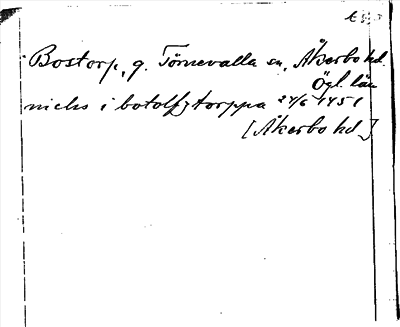 Bostorp, g. Törnevalla sn, Åkerbo hd.
Ögl. län
niclis i botolfztorppa 27/6 1451
[Åkerbo hd.]